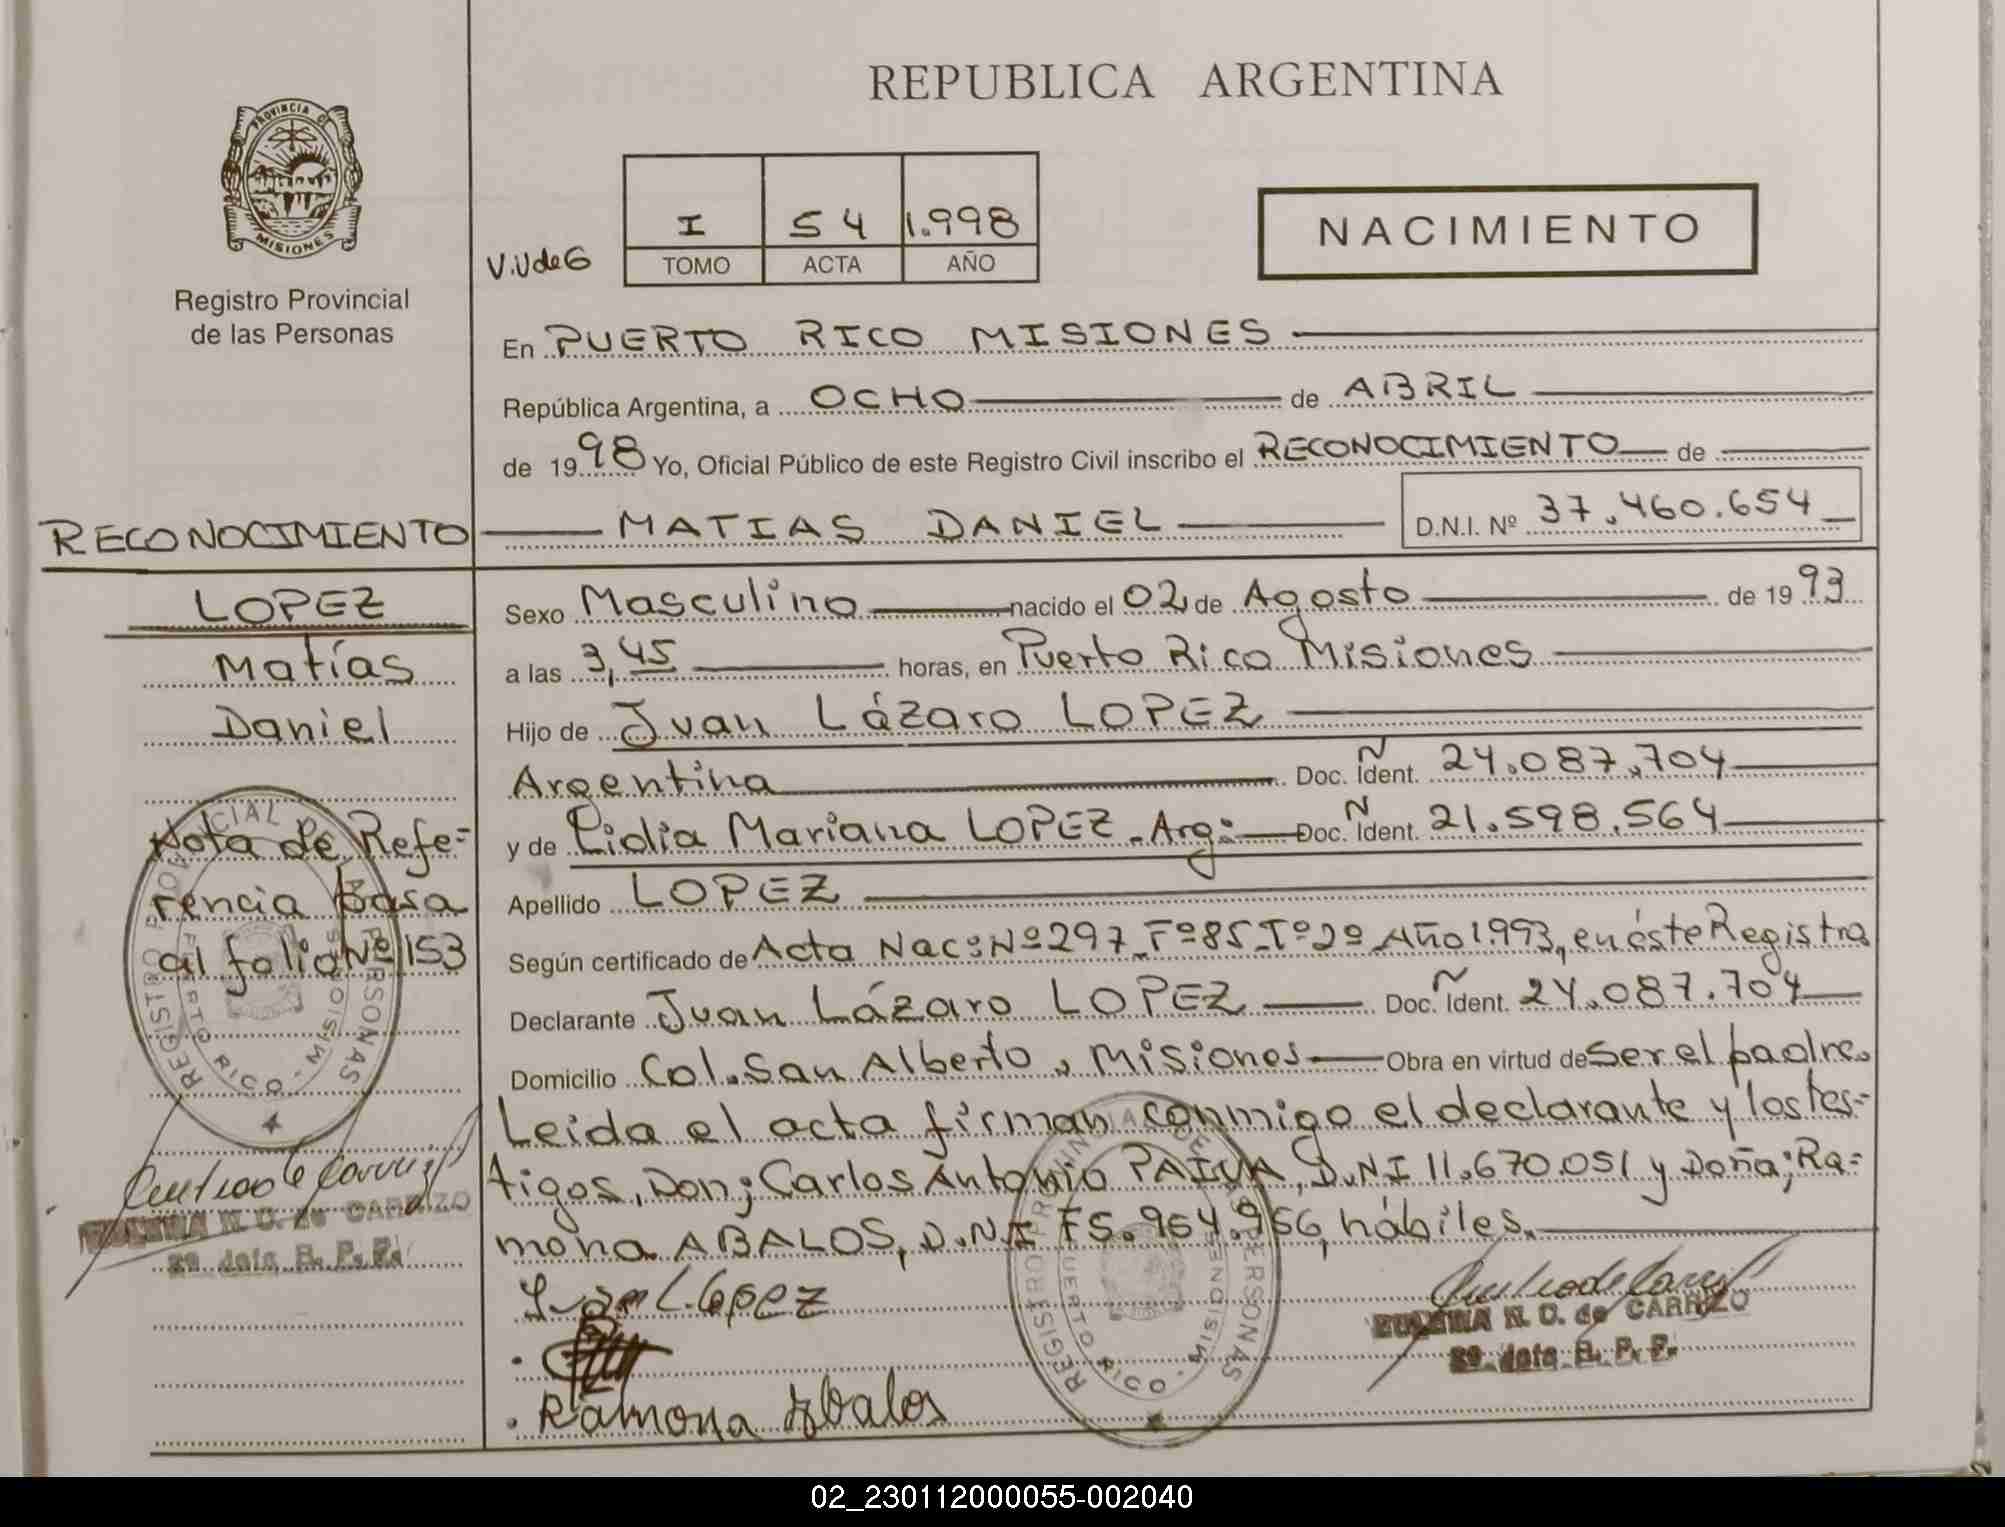 REPUBLICA ARGENTINA
PROVINCIA DE
MISIONES
Registro Provincial
de las Personas
V.V de G
I 54 1.998
TOMO ACTA AÑO
NACIMIENTO
En PUERTO RICO MISIONES
República Argentina, a OCHO de ABRIL
de 1998 Yo, Oficial Público de este Registro Civil inscribo el RECONOCIMIENTO de
MATIAS DANIEL D.N.I. Nº 37.460.654
RECONOCIMIENTO
LOPEZ
Matías
Daniel
Nota de Refe=
rencia pasa
al folio Nº 153
REGISTRO PROVINCIAL DE LAS PERSONAS
PUERTO RICO - MISIONES
N. C. de CARRIZO
Sexo Masculino nacido el 02 de Agosto de 1993
a las 3,45 horas, en Puerto Rico Misiones
Hijo de Juan Lázaro LOPEZ
Argentina Doc. Ident. Ñ 24.087.704
y de Lidia Mariana LOPEZ - Arg: Doc. Ident. Ñ 21.598.564
Apellido LOPEZ
Según certificado de Acta Nac: Nº 297 Fº 85 - Tº 2º Año 1.993, en éste Registro
Declarante Juan Lázaro LOPEZ Doc. Ident. Ñ 24.087.704
Domicilio Col. San Alberto, Misiones Obra en virtud de ser el padre.
Leida el acta firman conmigo el declarante y los tes=
tigos, Don; Carlos Antonio PAIVA, D.N.I 11.670.051 y Doña; Ra=
mona ABALOS, D.N.I F5.954.956, hábiles.
Juan L. Lopez
Ramona Abalos
REGISTRO PROVINCIAL DE LAS PERSONAS
PUERTO RICO - MISIONES
N. C. de CARRIZO
02_230112000055-002040